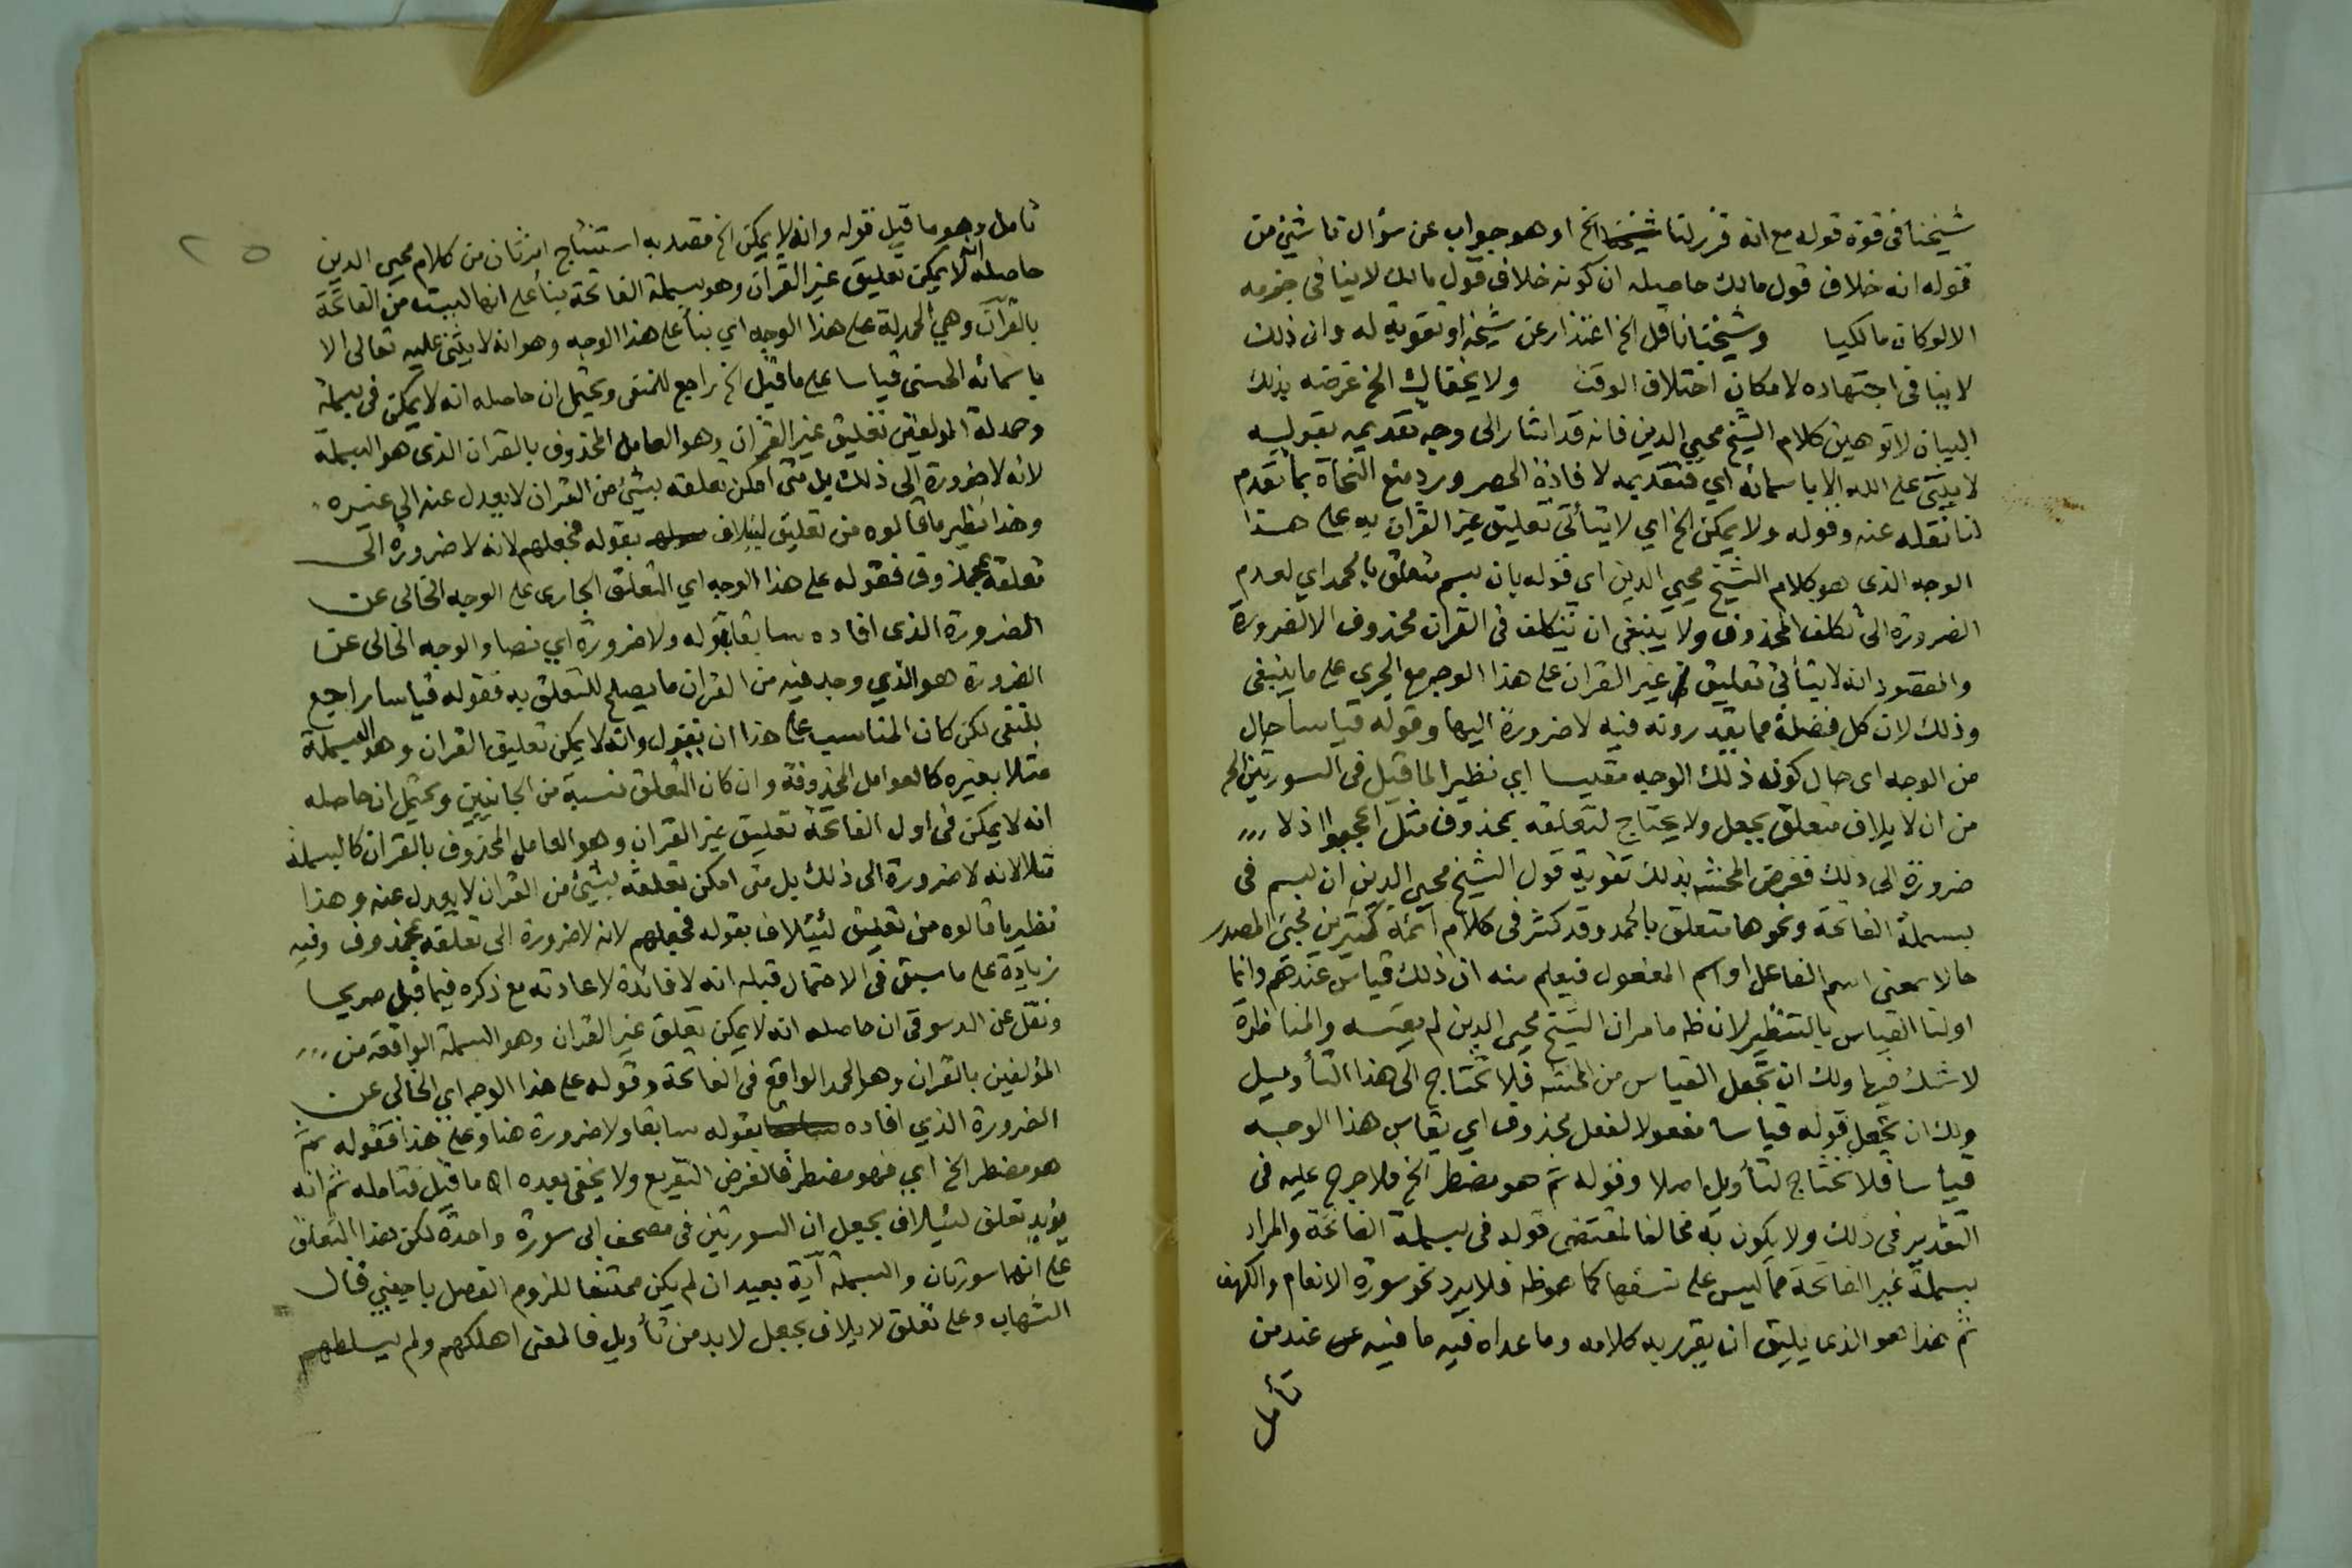 شيخنا فى قوة قوله مع انه قرر لنا شيخنا الخ او هو جواب عن سؤال ناشئ من
قوله انه خلاف قول مالك حاصله ان كونه خلاف قول مالك لا ينافى جزمه
الا لو كان مالكيا وشيخنا ناقل الخ اعتذار عن شيخه او تقوية له وان ذلك
لا ينافى اجتهاده لامكان اختلاف الوقت ولا يخفاك الخ غرضه بذلك
البيان لا توهين كلام الشيخ محيي الدين فانه قد اشار الى وجه تقديمه بقوله
لا يثنى على الله الا باسمائه اي فتقديمه لافادة الحصر ورد منع النحاة بما تقدم
لنا نقله عنه وقوله ولا يمكن الخ اي لا يتأتى تعليق غير القران به على هذا
الوجه الذى هو كلام الشيخ محيي الدين اي قوله بان بسم متعلق بالحمد اي لعدم
الضرورة الى تكلف المحذوف ولا ينبغى ان يتكلف فى القران محذوف الا لضرورة
والمقصود انه لا يتأتى تعليق غير القران على هذا الوجه مع الجري على ما ينبغى
وذلك لان كل فضلة مما يقدرونه فيه لا ضرورة اليها وقوله قياسا حال
من الوجه اى حال كونه ذلك الوجه مقيسا اي نظير الما قيل فى السورتين الخ
من ان لا يلاف متعلق بجعل ولا يحتاج لتعلقه بمحذوف مثل اعجبوا اذ لا
ضرورة الى ذلك فغرض المحشى بذلك تقوية قول الشيخ محيي الدين ان بسم فى
بسملة الفاتحة ونحوها متعلق بالحمد وقد كثر فى كلام ائمة كثيرين مجئ المصدر
حالا بمعنى اسم الفاعل او اسم المفعول فيعلم منه ان ذلك قياس عندهم وانما
اولنا القياس بالتنظير لان ظ ما مر ان الشيخ محيي الدين لم يقسه والمناظرة
لا شك فيها ولك ان تجعل القياس من المحشى فلا تحتاج الى هذا التأويل
ولك ان تجعل قوله قياسا مفعولا لفعل محذوف اي يقاس هذا الوجه
قياسا فلا تحتاج لتأويل اصلا وقوله ثم هو مضطر الخ فلا حرج عليه فى
التقدير فى ذلك ولا يكون به مخالفا لمقتضى قوله فى بسملة الفاتحة والمراد
بسملة غير الفاتحة مما ليس على نسقها كما هو ظ فلا يرد نحو سورة الانعام والكهف
ثم هذا هو الذى يليق ان يقرر به كلامه وما عداه فيه ما فيه عند من
تأمل
تامل وهو ما قيل قوله وانه لا يمكن الخ قصد به استنتاج امر ثان من كلام محيي الدين
حاصله انه لا يمكن تعليق غير القران وهو بسملة الفاتحة بناء على انها ليست من الفاتحة
بالقرآن وهي الحمدلة على هذا الوجه اي بناء على هذا الوجه وهو انه لا يثنى عليه تعالى الا
باسمائه الحسنى قياسا على ما قيل الخ راجع للمنفى ويحتمل ان حاصله انه لا يمكن فى بسملة
وحمدلة المولفين تعليق غير القران وهو العامل المحذوف بالقران الذى هو البسملة
لانه لا ضرورة الى ذلك بل متى امكن تعلقه بشئ من القران لا يعدل عنه الى غيره
وهذا نظير ما قالوه من تعليق لئيلاف بقوله فجعلهم لانه لا ضرورة الى
تعلقه بمحذوف فقوله على هذا الوجه اي التعلق الجارى على الوجه الخالى عن
الضرورة الذى افاده سابقا بقوله ولا ضرورة اي نصا والوجه الخالى عن
الضرورة هو الذي وجد فيه من القران ما يصلح للتعلق به فقوله قياسا راجع
للمنفى لكن كان المناسب على هذا ان يقول وانه لا يمكن تعليق القران وهو البسملة
مثلا بغيره كالعوامل المحذوفة وان كان التعلق نسبة من الجانبين ويحتمل ان حاصله
انه لا يمكن فى اول الفاتحة تعليق غير القران وهو العامل المحذوف بالقران كالبسملة
مثلا لانه لا ضرورة الى ذلك بل متى امكن تعلقه بشئ من القران لا يعدل عنه وهذا
نظير ما قالوه من تعليق لئيلاف بقوله فجعلهم لانه لا ضرورة الى تعلقه بمحذوف وفيه
زيادة على ما سبق فى الاحتمال قبله انه لا فائدة لاعادته مع ذكره فيما قبل صريحا
ونقل عن الدسوقى ان حاصله انه لا يمكن تعلق غير القران وهو البسملة الواقعة من
المؤلفين بالقران وهو الحمد الواقع فى الفاتحة وقوله على هذا الوجه اي الخالى عن
الضرورة الذي افاده بقوله سابقا ولا ضرورة هنا وعلى هذا فقوله ثم
هو مضطر الخ اي فهو مضطر فالغرض التفريع ولا يخفى بعده اه ما قيل فتامله ثم انه
يؤيد تعلق لئيلاف بجعل ان السورتين فى مصحف ابى سورة واحدة لكن هذا التعلق
على انهما سورتان والبسملة آية بعيد ان لم يكن ممتنعا للزوم الفصل باجنبي قال
الشهاب وعلى تعلق لا يلاف بجعل لا بد من تأويل فالمعنى اهلكهم ولم يسلطهم